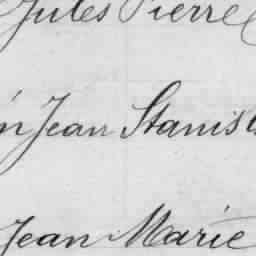 Jules Pierre
Jean Stanis
Jean Marie